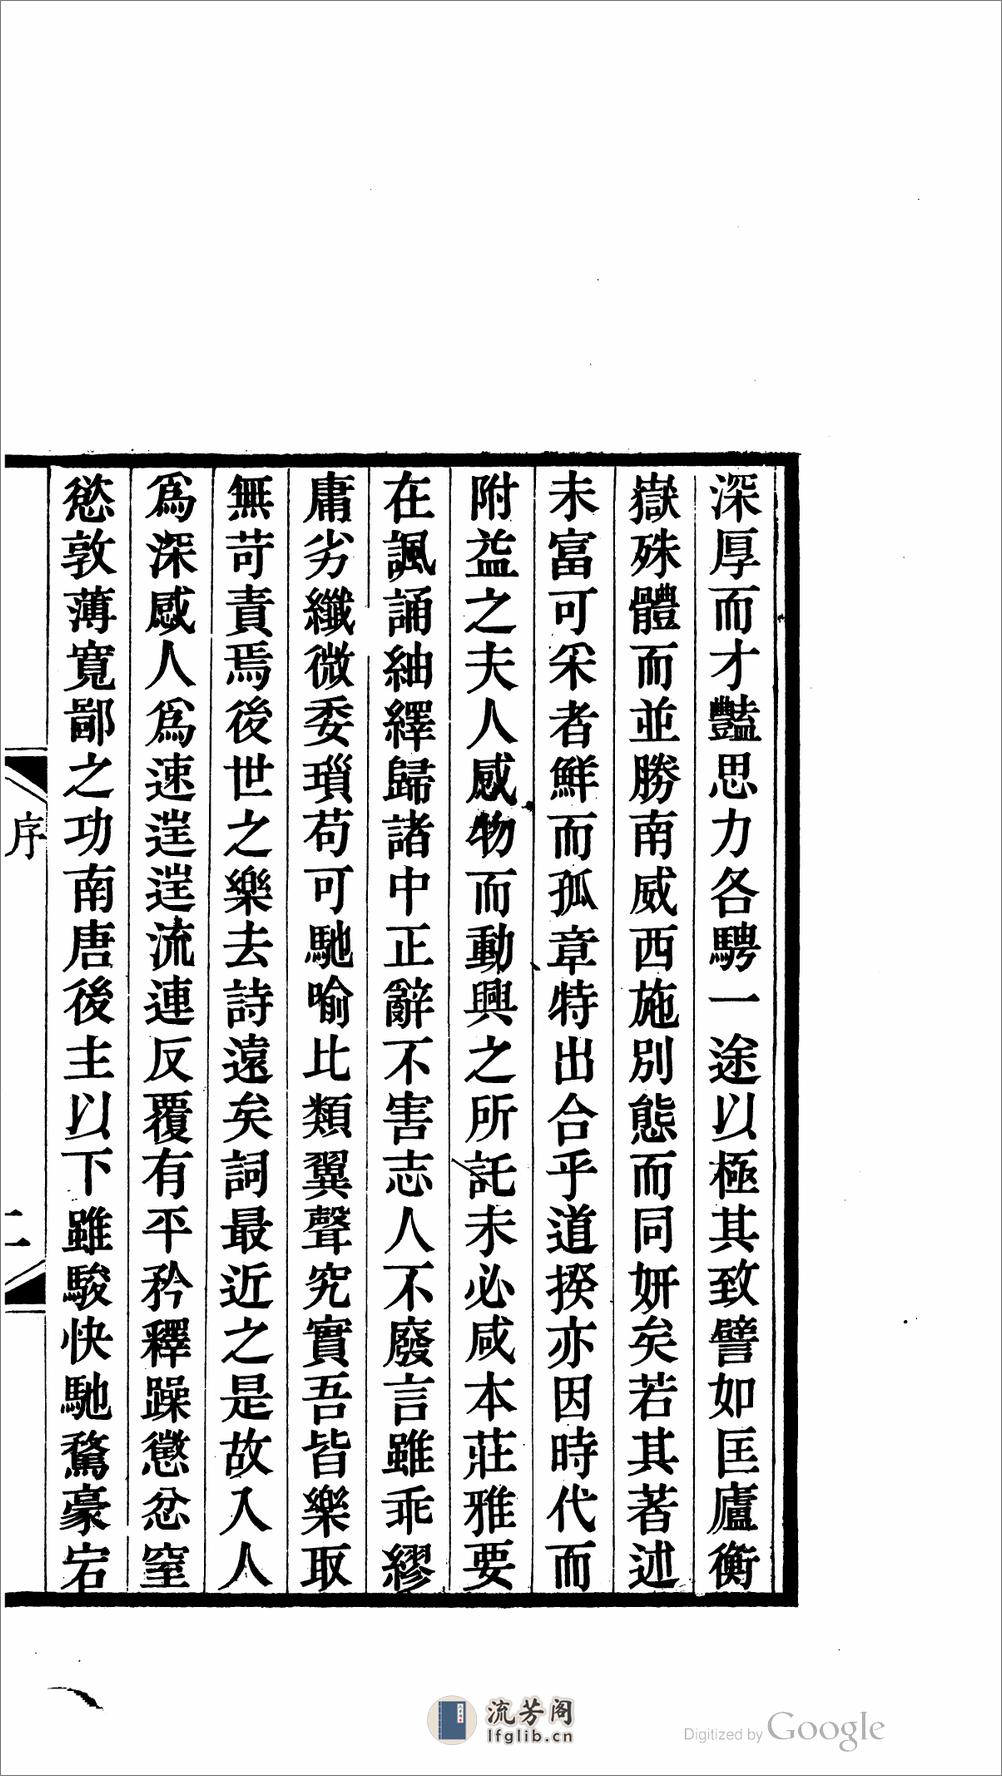 深厚而才豔思力各騁一途以極其致譬如匡廬衡
嶽殊體而並勝南威西施別態而同妍矣若其著述
未富可采者鮮而孤章特出合乎道揆亦因時代而
附益之夫人感物而動興之所託未必咸本莊雅要
在諷誦紬繹歸諸中正辭不害志人不廢言雖乖繆
庸劣纖微委瑣苟可馳喻比類翼聲究實吾皆樂取
無苛責焉後世之樂去詩遠矣詞最近之是故入人
爲深感人爲速迋迋流連反覆有平矜釋躁懲忿窒
慾敦薄寬鄙之功南唐後主以下雖駿快馳騖豪宕
序
二
流芳阁
lfglib.cn
Digitized by Google